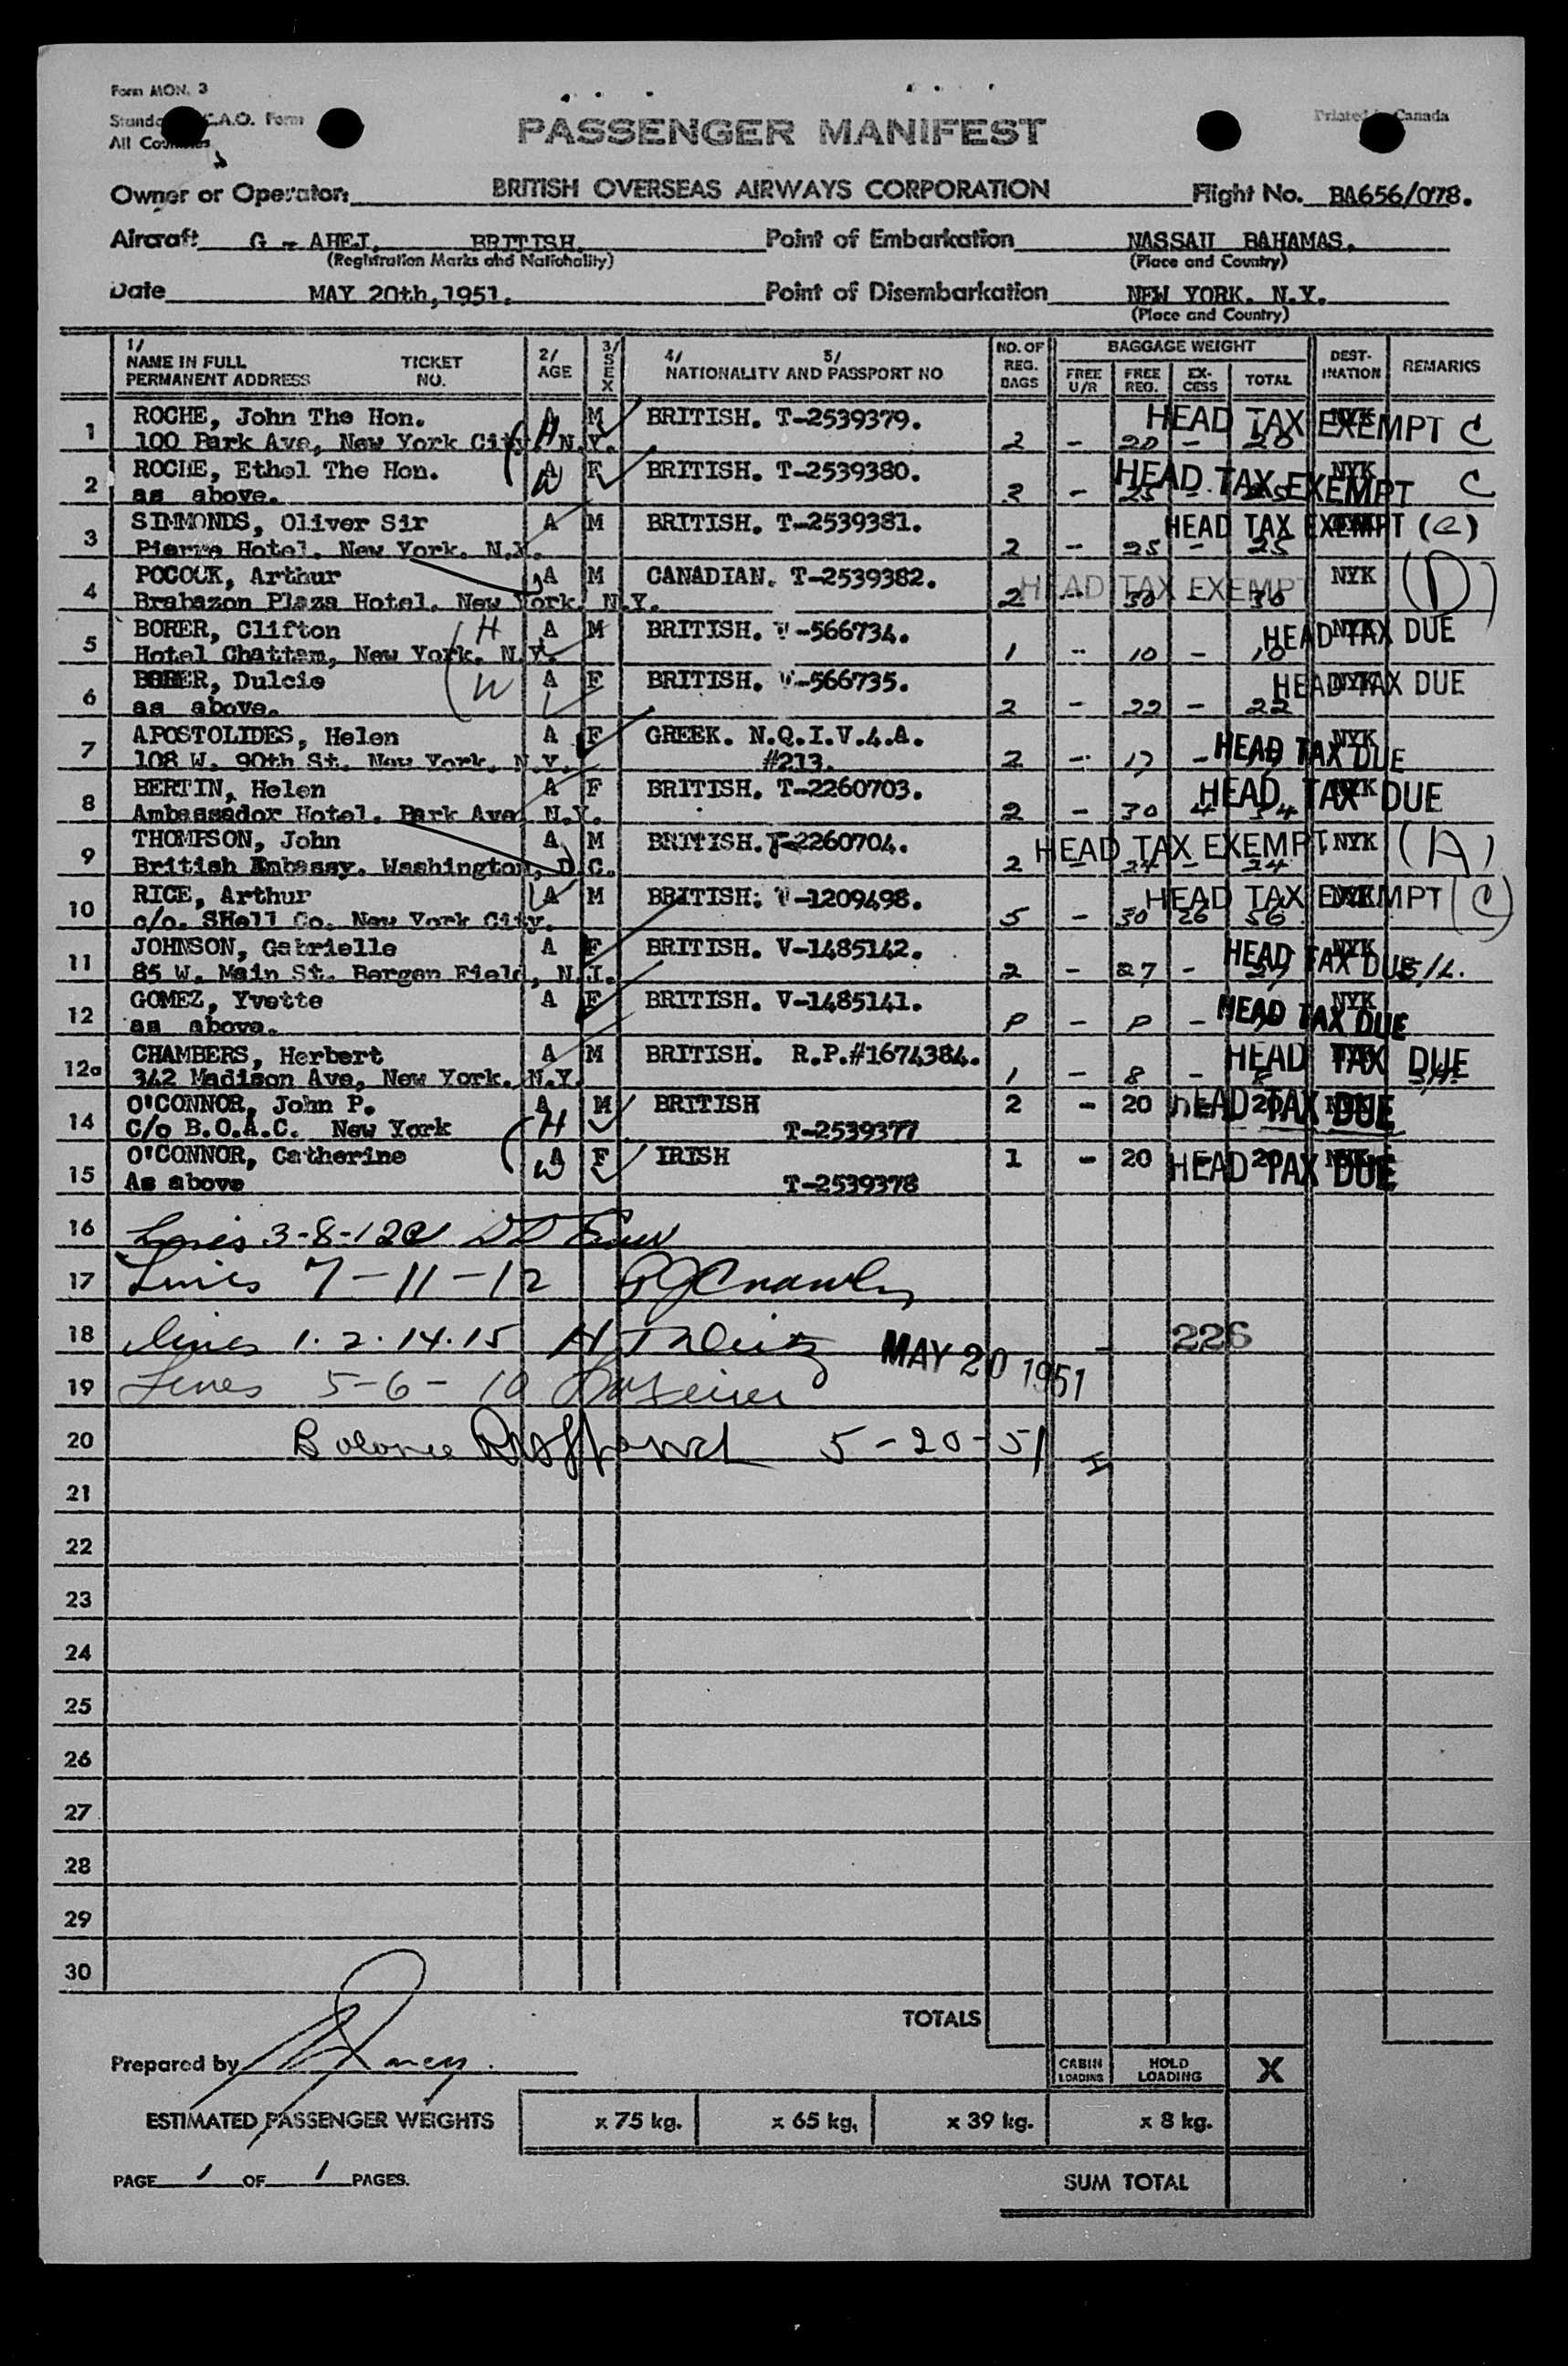 Form MON. 3
Standa C.A.O. Form
All Countries
Printed in Canada
PASSENGER MANIFEST
Owner or Operator: BRITISH OVERSEAS AIRWAYS CORPORATION Flight No. BA656/078.
Aircraft G - AHEJ. BRITISH Point of Embarkation NASSAU BAHAMAS.
(Registration Marks and Nationality) (Place and Country)
Date MAY 20th,1951. Point of Disembarkation NEW YORK. N.Y.
(Place and Country)
1/ NAME IN FULL PERMANENT ADDRESS TICKET NO. 2/ AGE 3/ SEX 4/ 5/ NATIONALITY AND PASSPORT NO NO. OF REG. BAGS BAGGAGE WEIGHT FREE U/R FREE REG. EX-CESS TOTAL DEST-INATION REMARKS
1 ROCHE, John The Hon. A M BRITISH. T-2539379. HEAD TAX EXEMPT C
100 Park Ave, New York City, N.Y. H 2 - 20 - 20 NYK
2 ROCHE, Ethel The Hon. A F BRITISH. T-2539380. HEAD TAX EXEMPT C
as above. W 2 - 25 - 25 NYK
3 SIMMONDS, Oliver Sir A M BRITISH. T-2539381. HEAD TAX EXEMPT (C)
Pierre Hotel. New York. N.Y. 2 - 25 - 25 NYK
4 POCOCK, Arthur A M CANADIAN. T-2539382. HEAD TAX EXEMPT NYK (D)
Brabazon Plaza Hotel. New York. N.Y. 2 - 30 - 30
5 BORER, Clifton H A M BRITISH. V-566734. HEAD TAX DUE
Hotel Chattam, New York. N.Y. 1 - 10 - 10 NYK
6 BORER, Dulcie W A F BRITISH. V-566735. HEAD TAX DUE
as above. 2 - 22 - 22 NYK
7 APOSTOLIDES, Helen A F GREEK. N.Q.I.V.4.A. NYK
108 W. 90th St. New York. N.Y. #213. 2 - 17 - HEAD TAX DUE
8 BERTIN, Helen A F BRITISH. T-2260703. NYK
Ambassador Hotel. Park Ave N.Y. 2 - 30 4 34 HEAD TAX DUE
9 THOMPSON, John A M BRITISH. T-2260704. HEAD TAX EXEMPT. NYK (A)
British Embassy. Washington, D.C. 2 - 24 - 24
10 RICE, Arthur A M BRITISH. V-1209498. HEAD TAX EXEMPT (C)
c/o. SHell Co. New York City. 5 - 30 26 56 NYK
11 JOHNSON, Gabrielle A F BRITISH. V-1485142. HEAD TAX DUE
85 W. Main St. Bergen Field, N.I. 2 - 27 - 27 NYK S/L.
12 GOMEZ, Yvette A F BRITISH. V-1485141. NYK
as above. P - P - HEAD TAX DUE
12a CHAMBERS, Herbert A M BRITISH. R.P.#1674384. HEAD TAX DUE
342 Madison Ave, New York. N.Y. 1 - 8 - 8
14 O'CONNOR, John P. A M BRITISH 2 - 20 - 20 HEAD TAX DUE
C/o B.O.A.C. New York H T-2539377
15 O'CONNOR, Catherine A F IRISH 1 - 20 - 20 HEAD TAX DUE
As above W T-2539378
16 Lines 3-8-12a
17 Lines 7-11-12
18 Lines 1. 2. 14. 15 MAY 20 1951 226
19 Lines 5-6-10
20 Balance 5-20-51
21
22
23
24
25
26
27
28
29
30
TOTALS
Prepared by
CABIN LOADING HOLD LOADING X
ESTIMATED PASSENGER WEIGHTS x 75 kg. x 65 kg. x 39 kg. x 8 kg.
PAGE 1 OF 1 PAGES.
SUM TOTAL